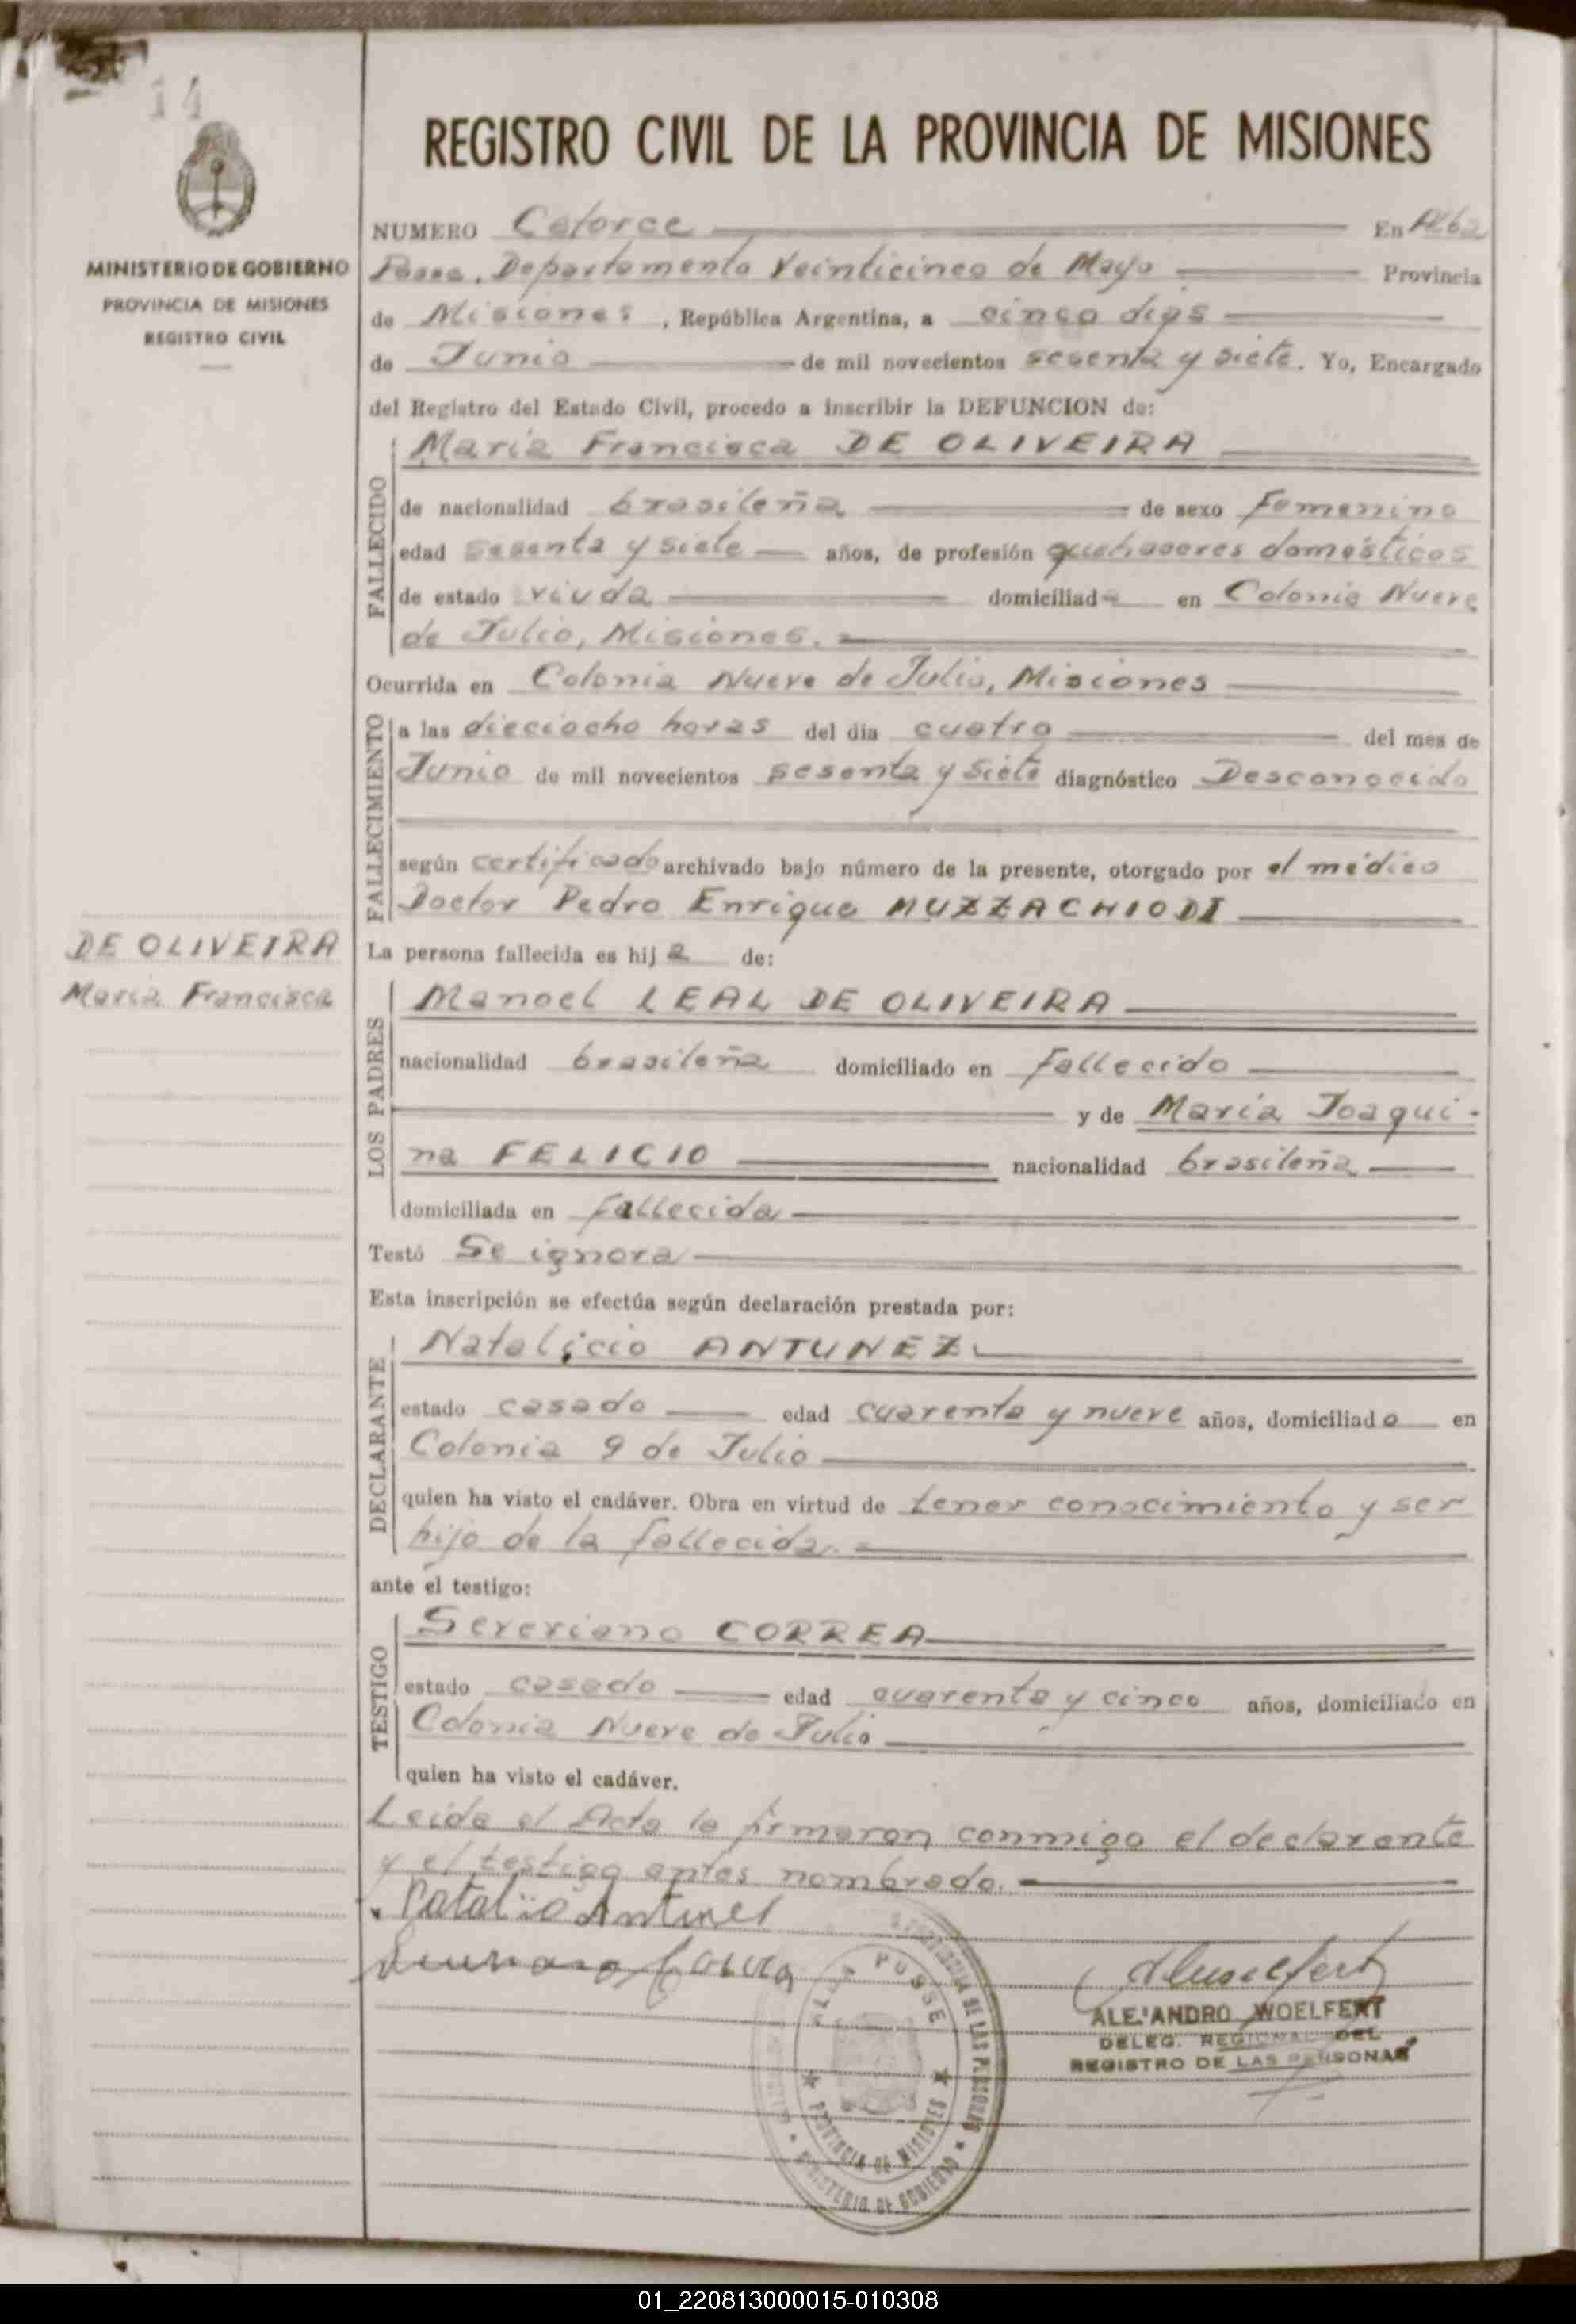 14
MINISTERIO DE GOBIERNO
PROVINCIA DE MISIONES
REGISTRO CIVIL
DE OLIVEIRA
María Francisca
REGISTRO CIVIL DE LA PROVINCIA DE MISIONES
NUMERO Catorce En Alba
Posse, Departamento Veinticinco de Mayo Provincia
de Misiones, República Argentina, a cinco días
de Junio de mil novecientos sesenta y siete. Yo, Encargado
del Registro del Estado Civil, procedo a inscribir la DEFUNCION de:
FALLECIDO
María Francisca DE OLIVEIRA
de nacionalidad brasileña de sexo Femenino
edad sesenta y siete años, de profesión quehaseres domésticos
de estado viuda domiciliada en Colonia Nueve
de Julio, Misiones.
Ocurrida en Colonia Nueve de Julio, Misiones
FALLECIMIENTO
a las dieciocho horas del día cuatro del mes de
Junio de mil novecientos sesenta y siete diagnóstico Desconocido
según certificado archivado bajo número de la presente, otorgado por el médico
Doctor Pedro Enrique MUZZACHIODI
La persona fallecida es hija de:
LOS PADRES
Manoel LEAL DE OLIVEIRA
nacionalidad brasileña domiciliado en Fallecido
y de María Joaqui-
na FELICIO nacionalidad brasileña
domiciliada en Fallecida
Testó Se ignora
Esta inscripción se efectúa según declaración prestada por:
DECLARANTE
Natalicio ANTUNEZ
estado casado edad cuarenta y nueve años, domiciliado en
Colonia 9 de Julio
quien ha visto el cadáver. Obra en virtud de tener conocimiento y ser
hijo de la fallecida.
ante el testigo:
TESTIGO
Severiano CORREA
estado casado edad cuarenta y cinco años, domiciliado en
Colonia Nueve de Julio
quien ha visto el cadáver.
Leída el Acta la firmaron conmigo el declarante
y el testigo antes nombrado.
ALBA POSSE
PROVINCIA DE MISIONES
MINISTERIO DE GOBIERNO
DE LAS PERSONAS
ALEJANDRO WOELFERT
DELEG. REGIONAL DEL
REGISTRO DE LAS PERSONAS
01_220813000015-010308